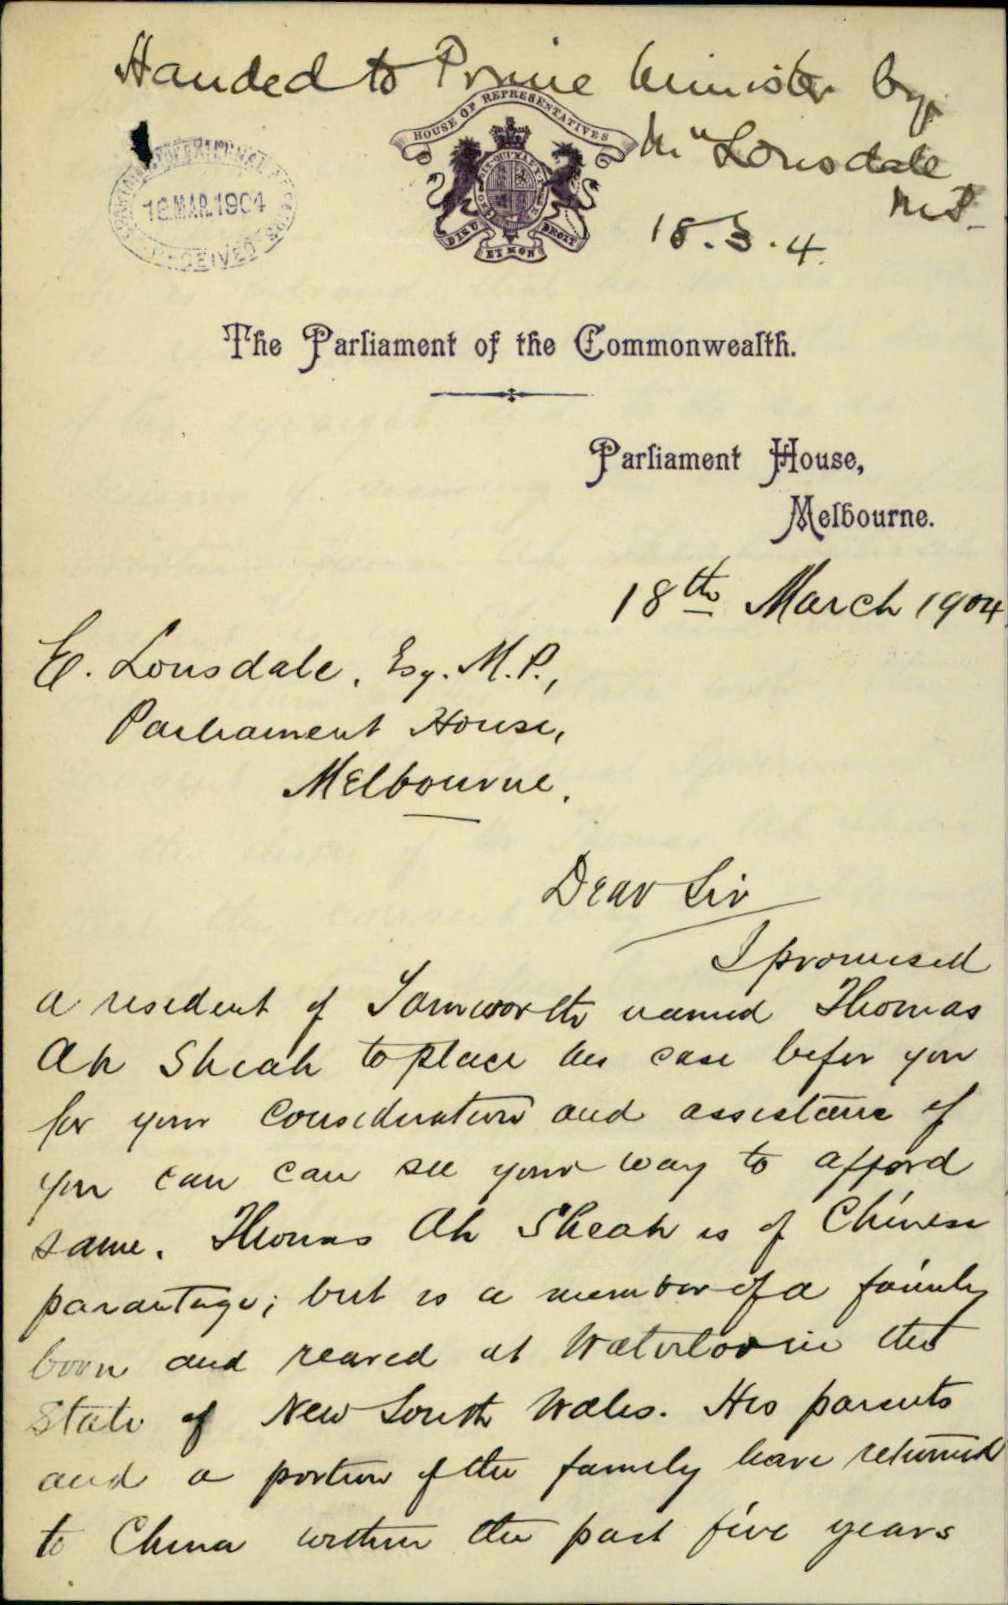 Handed to Prime Minister by
Mr Lonsdale
M.P.
18.3.4.
HOUSE OF REPRESENTATIVES
DIEU ET MON DROIT
18.MAR.1904
RECEIVED
The Parliament of the Commonwealth.
Parliament House,
Melbourne.
18th March 1904
E. Lonsdale, Esq. M.P.,
Parliament House,
Melbourne.
Dear Sir
I promised
a resident of Tamworth named Thomas
Ah Sheah to place his case before you
for your consideration and assistance if
you can can see your way to afford
same. Thomas Ah Sheah is of Chinese
parantage; but is a member of a family
born and reared at Waterloo in the
State of New South Wales. His parents
and a portion of the family have returned
to China within the past five years